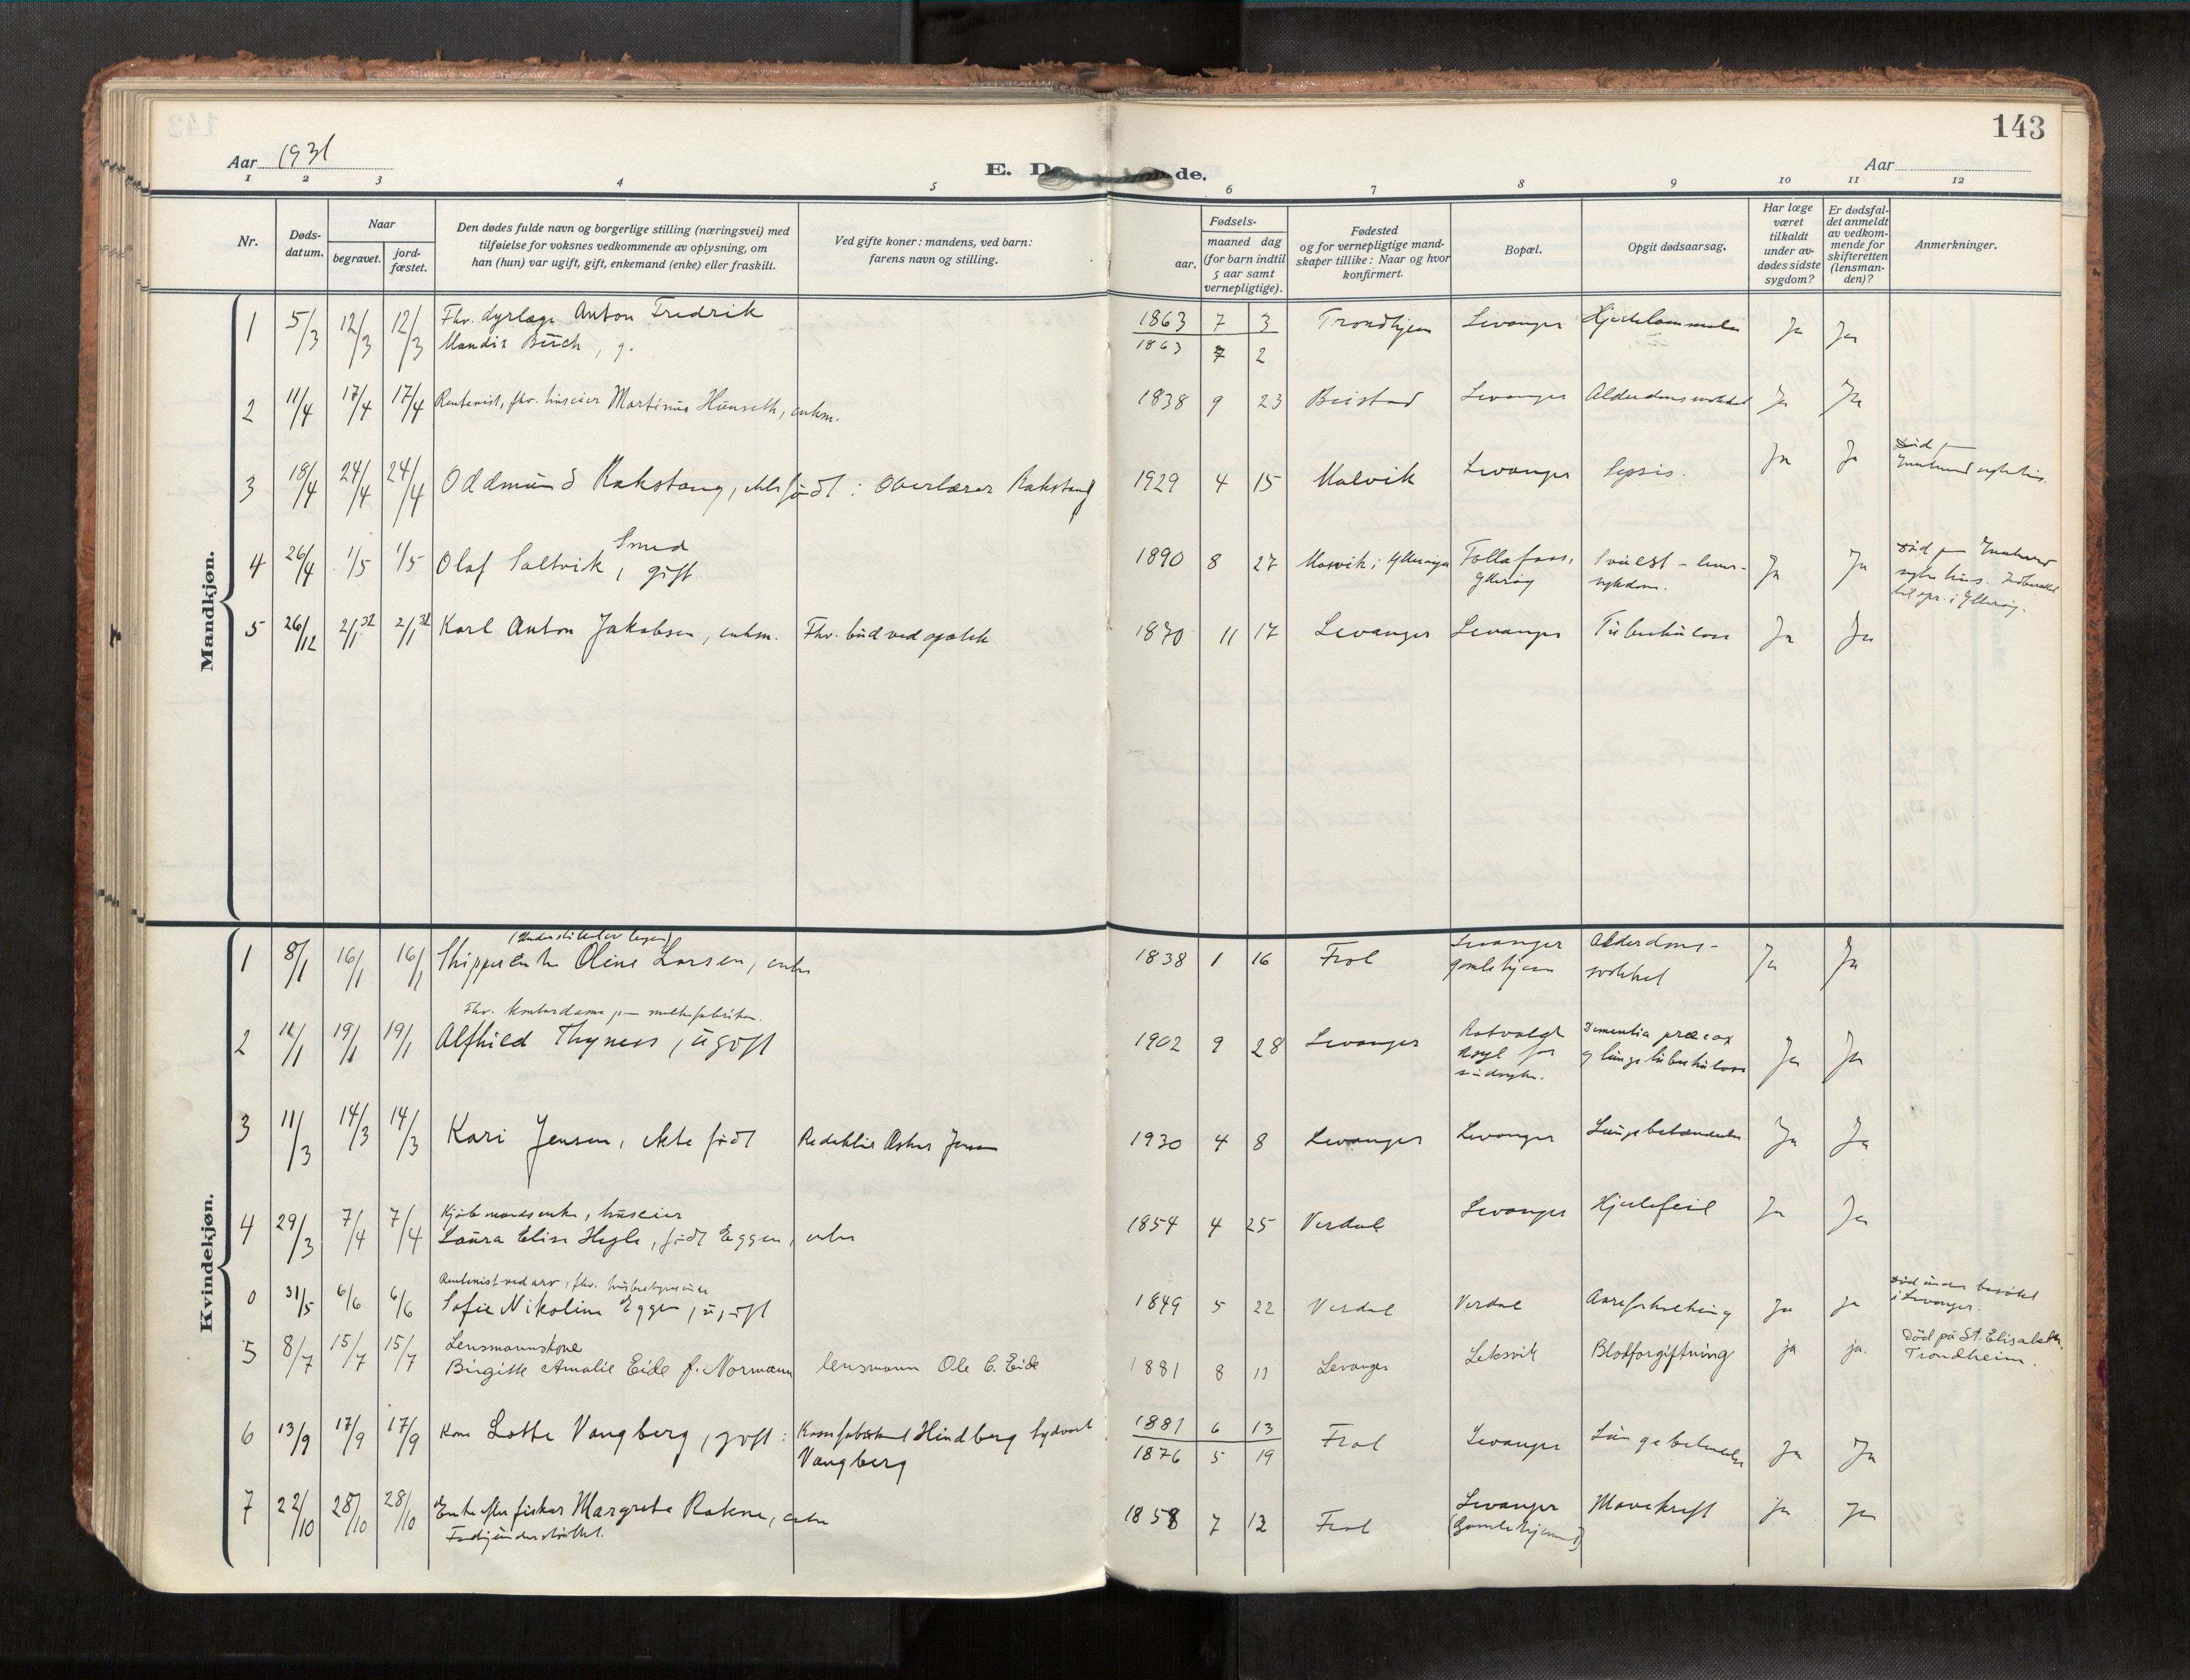 143
Aar 1931
E. D de.
Aar
1 2 3 4 5 6 7 8 9 10 11 12
Nr.
Døds-
datum.
Naar
begravet.
jord-
fæstet.
Den dødes fulde navn og borgerlige stilling (næringsvei) med
tilføielse for voksnes vedkommende av oplysning, om
han (hun) var ugift, gift, enkemand (enke) eller fraskilt.
Ved gifte koner: mandens, ved barn:
farens navn og stilling.
Fødsels-
aar.
maaned dag
(for barn indtil
5 aar samt
vernepligtige).
Fødested
og for vernepligtige mand-
skaper tillike: Naar og hvor
konfirmert.
Bopæl.
Opgit dødsaarsag.
Har læge
været
tilkaldt
under av-
dødes sidste
sygdom?
Er dødsfal-
det anmeldt
av vedkom-
mende for
skifteretten
(lensman-
den)?
Anmerkninger.
Mandkjøn.
1 5/3 12/3 12/3 Fhv. dyrlæge Anton Fredrik 1863 7 3 Trondhjem Levanger Hjertelammelse Ja Ja
Mandix Buch, g. 1863 7 2
2 11/4 17/4 17/4 Rentenist, fhv. huseier Martinus Hunseth, enkem. 1838 9 23 Beistad Levanger Alderdomssvakhet Ja Ja
3 18/4 24/4 24/4 Oddmund Rakstang, ekte født : Overlærer Rakstang 1929 4 15 Malvik Levanger Sepsis. Ja Ja Død på
Innherred sykehus.
Smed
4 26/4 1/5 1/5 Olaf Saltvik, gift 1890 8 27 Mosvik i Ytterøy Follafoss, Ja Ja Død på Innherred
Ytterøy sykdom. sykehus. Indberettet
til spr. i Ytterøy.
5 26/12 2/1 32 2/1 32 Karl Anton Jakobsen, enkem. Fhv. bud ved apotek 1870 11 17 Levanger Levanger Tuberkulose Ja Ja
Kvindekjøn.
(Understøttet av legen)
1 8/1 16/1 16/1 Skipperenke Oline Larsen, enke 1838 1 16 Frol Levanger Alderdoms- Ja Ja
gamlehjem svakhet
Fhv. kontordame på melkefabrikken.
2 11/1 19/1 19/1 Alfhild Thyness, ugift 1902 9 28 Levanger Rotvold Dementia præcox Ja Ja
asyl for og lungetuberkulose
sindssyke.
3 11/3 14/3 14/3 Kari Jensen, ekte født Redaktør Asker Jensen 1930 4 8 Levanger Levanger Lungebetændelse Ja Ja
Kjøbmandsenke, huseier
4 29/3 7/4 7/4 Laura Elise Hegle, født Eggen, enke 1854 4 25 Verdal Levanger Hjertefeil Ja Ja
Rentenist ved arv, fhv. husbestyrerinne
0 31/5 6/6 6/6 Sofie Nikoline Eggen, ugift 1849 5 22 Verdal Verdal Aareforkalkning Ja ja Død under besøket
i Levanger.
Lensmannskone
5 8/7 15/7 15/7 Birgitte Amalie Eide f. Normann lensmann Ole C. Eide 1881 8 11 Levanger Leksvik Blodforgiftning ja ja. Død på St. Elisabeth,
Trondheim.
6 13/9 17/9 17/9 Kone Lotte Vangberg, gift: Hindberg Sydvart 1881 6 13 Frol Levanger Lungebetændelse Ja Ja
Vangberg 1876 5 19
7 22/10 28/10 28/10 Enke efter fisker Margrete Rokne, enke 1858 7 12 Frol Levanger Mavekreft Ja Ja
Fattigunderstøttet. (Gamlehjemmet)